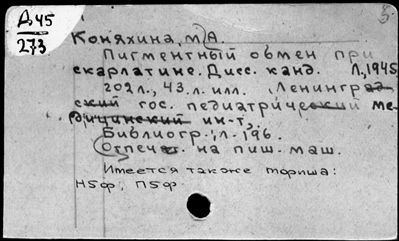 Д45
273
Коняхина, М. А.
Пигментный обмен при
скарлатине. Дисс. канд. Л., 1945
202 л., 43. л. илл. (Ленинград-
ский гос. педиатрический ме-
дицинский ин-т),
Библиогр.: л. 196.
Отпечат. на пиш. маш.
Имеется также шифр:
Н5ф; П5ф.